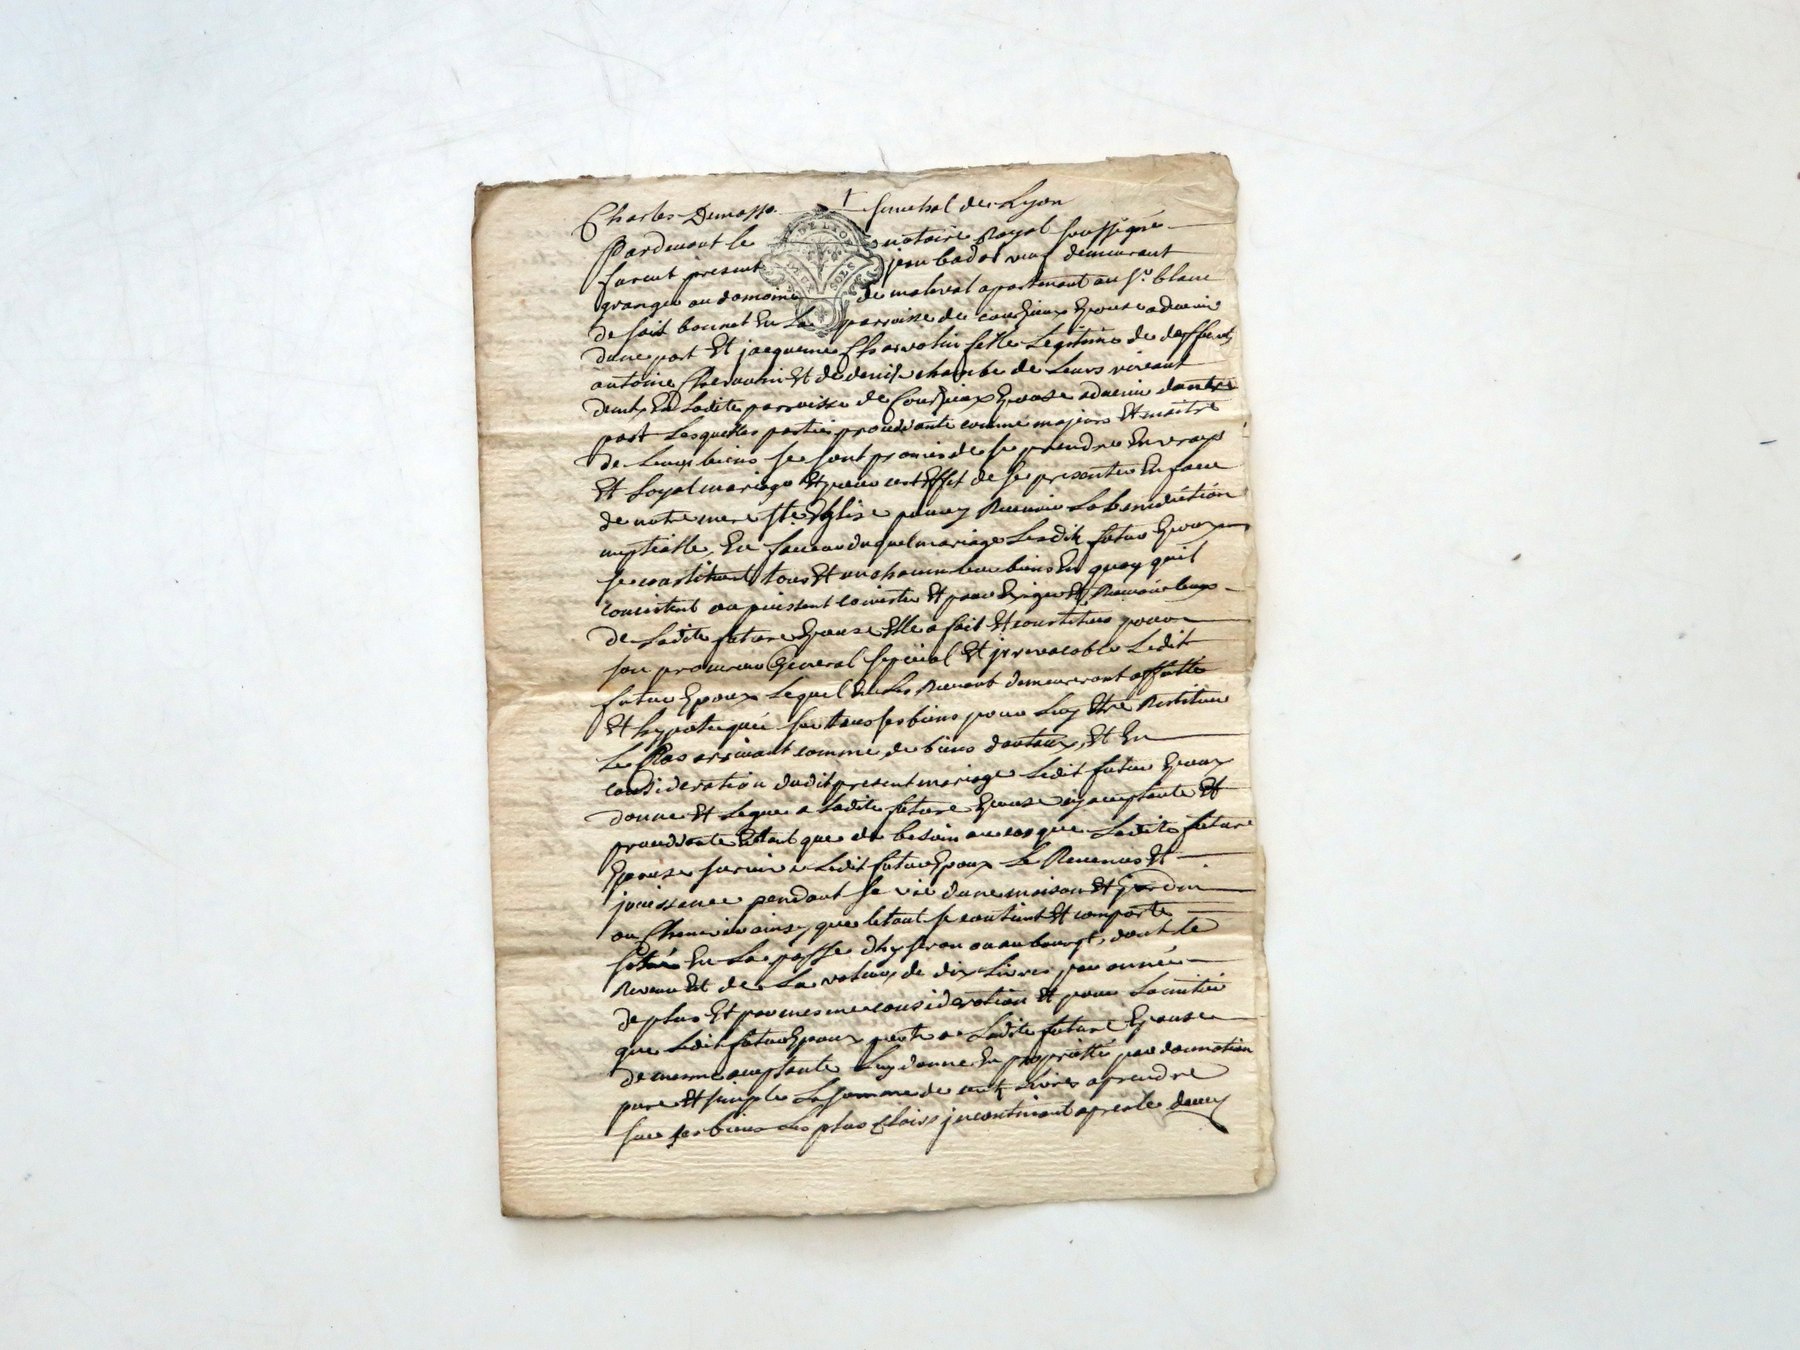 Charles Demasso senechal de Lyon
Pardevant le notaire Royal soussigné
furent present jean badol demeurant
granger au domaine de malaval apartenant au Sr. blanc
de saint bonnet En La parroisse de Courzieux Epoux advenir
dune part Et jacqueme Chervolin fille Legitime de deffunts
antoine Chervolin Et de denise chambe de Leurs vivant
demts En Ladite parroisse de Courzieux Epouse advenir dautre
part Lesquelles parties procedante comme majeurs Et maitre
de Leurs biens se sont promis de se prendre En vray
Et Loyal mariage Et pour cet Effet de se presenter En face
de notre mere ste. Eglise pour y Recevoir La benediction
nuptialle, En faveur duquel mariage Lesdits futur Epoux
se constituent tous Et un chacun leur biens En quoy quil
consistent ou puissent consister Et pour Exiger Et Recevoir ceux
de Ladite future Epouse Elle a fait Et constitué pour
son procureur General special Et jrrevocable Ledit
futur Epoux Lequel En Les Recevant demeureront affecté
Et hypotequé sur tous ses biens pour Luy Etre Restitué
Le Cas arrivant comme de biens dautaux, Et En
consideration dudit present mariage Ledit futur Epoux
donne Et Legue a Ladite future Epouse icy acceptante Et
procedante Entant que de besoin au cas que Ladite future
Epouse survive Ledit futur Epoux Le Revenus Et
jouissance pendant sa vie dune maison Et jardin
ou Cheneviere ainsy que le tout se contient Et comporte
situé En La pasſe dhyseron ou au bourgt, dont le
Revenu Est de La valeur de dix Livres par année
de plus Et par mesme consideration Et pour Lamitié
que Ledit futur Epoux porte a Ladite future Epouse
de mesme acceptante Luy donne En proprietté par donnation
pure Et simple La somme de cent Livres a prendre
sur ses biens Les plus Clairs jncontinent apres le deces
DE LYON
DEUX SOLS